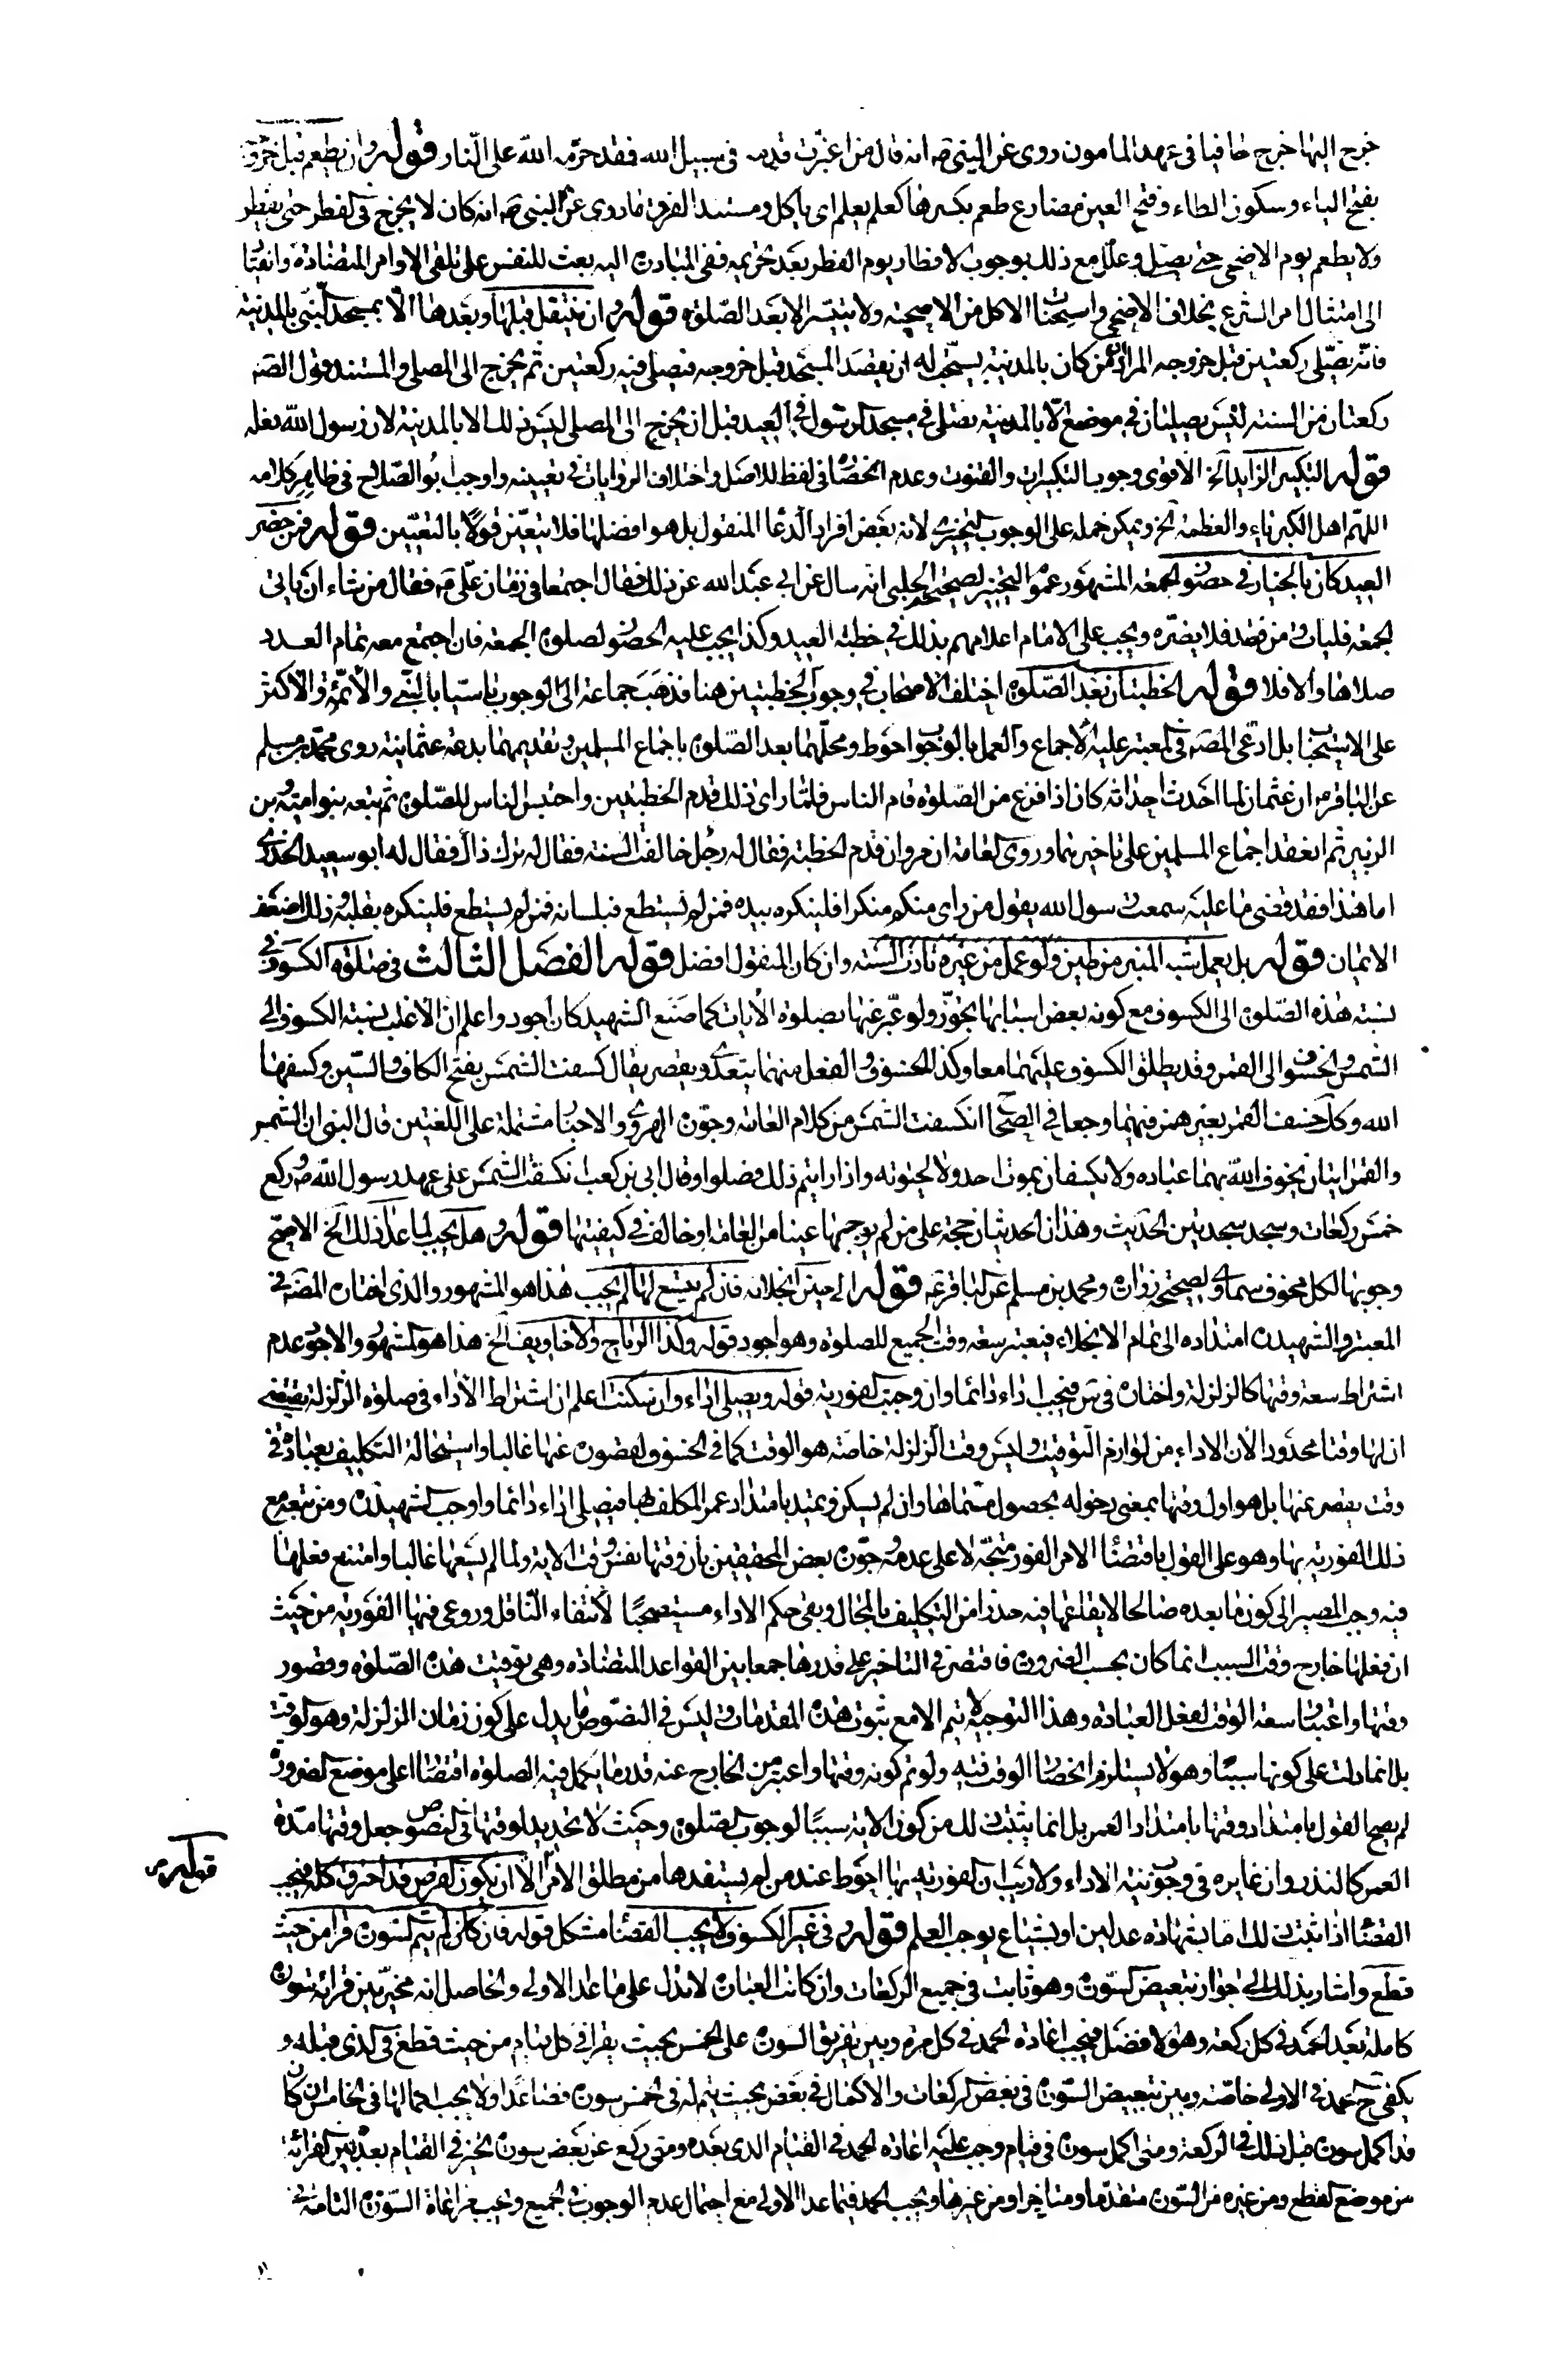 خرج اليها خرج حافيا في عهد المامون روى عن النبي ص انه قال من اغبرت قدمه في سبيل الله فقد حرمه الله على النار قوله وان يطعم قبل خروجه
بفتح الياء وسكون الطاء وفتح العين مضارع طعم بكسرها كعلم يعلم اى ياكل ومستند الفرق ما روى عن النبي ص انه كان لا يخرج في الفطر حتى يفطر
ولا يطعم يوم الاضحى حتى يصلى وعلل مع ذلك بوجوب الافطار يوم الفطر بعد تحريمه ففى المبادرة اليه بعث للنفس على تلقى الاوامر المتضادة وانقيادا
الى امتثال امر الشرع بخلاف الاضحى واستحباب الاكل من الاضحية ولا يتيسر الا بعد الصلوة قوله وان يتنفل قبلها وبعدها الا بمسجد النبي بالمدينة
فانه يصلى ركعتين قبل خروجه المراد ان من كان بالمدينة يستحب له ان يقصد المسجد قبل خروجه فيصلى فيه ركعتين ثم يخرج الى المصلى والمستند قول الصم
ركعتان من السنة ليس يصليان في موضع الا بالمدينة يصلى في مسجد الرسول في العيد قبل ان يخرج الى المصلى ليس ذلك الا بالمدينة لان رسول الله فعله
قوله التكبير الزايد الخ الاقوى وجوب التكبيرات والقنوت وعدم انحصاره في لفظ للاصل واختلاف الروايات في تعيينه واوجب ابو الصلاح في ظاهر كلامه
اللهم اهل الكبرياء والعظمة الخ ويمكن حمله على الوجوب التخييرى لانه بعض افراد الدعا المنقول بل هو افضلها فلا يتعين قولا بالتعيين قوله فمن حضر
العيد كان بالخيار في حضور الجمعة المشهور عموم التخيير لصحيحة الحلبى انه سال عن ابي عبد الله عن ذلك فقال اجتمعا في زمان على ع فقال من شاء ان ياتى
الجمعة فليات ومن قعد فلا يضره ويجب على الامام اعلامهم بذلك في خطبة العيد وكذا يجب عليه الحضور لصلوة الجمعة فان اجتمع معه تمام العدد
صلاها والا فلا قوله الخطبتان بعد الصلوة اختلف الاصحاب في وجوب الخطبتين هنا فذهب جماعة الى الوجوب تاسيا بالنبي والائمة والاكثر
على الاستحباب بل ادعى المصم في المعتبر عليه الاجماع والعمل بالوجوب احوط ومحلهما بعد الصلوة باجماع المسلمين وتقديمهما بدعة عثمانية روى محمد بن مسلم
عن الباقر ع ان عثمان لما احدث احداثه كان اذا فرغ من الصلوة قام الناس فلما راى ذلك قدم الخطبتين واحتبس الناس للصلوة ثم تبعه بنو امية وبن
الزبير ثم انعقد اجماع المسلمين على تاخيرهما وروى العامة ان مروان قدم الخطبة فقال له رجل خالفت السنة فقال له ترك ذاك فقال له ابو سعيد الخدرى
اما هذا فقد قضى ما عليه سمعت رسول الله يقول من راى منكم منكرا فلينكره بيده فمن لم يستطع فبلسانه فمن لم يستطع فلينكره بقلبه وذلك اضعف
الايمان قوله بل يعمل شبه المنبر من طين ولو عمل من غيره تادت السنة وان كان المنقول افضل قوله الفصل الثالث في صلوة الكسوف
نسبة هذه الصلوة الى الكسوف مع كونه بعض اسبابها تجوز ولو عبر عنها بصلوة الآيات كما صنع الشهيد كان اجود واعلم ان الاغلب نسبة الكسوف الى
الشمس والخسوف الى القمر وقد يطلق الكسوف عليهما معا وكذا الخسوف والفعل منهما يتعدى ويقصر يقال كسفت الشمس بفتح الكاف والسين وكسفها
الله وكذا خسف القمر بغير همز فيهما وجعل في الصحاح انكسفت الشمس من كلام العامة وجوزه الهروى والاخبار مشتملة على اللغتين قال النبي ان الشمس
والقمر ايتان يخوف الله بهما عباده ولا يكسفان بموت احد ولا لحيوته واذا رايتم ذلك فصلوا وقال ابى بن كعب انكسفت الشمس على عهد رسول الله ص فركع
خمس ركعات وسجد سجدتين الحديث وهذان الحديثان حجة على من لم يوجبها عينا من العامة او خالف في كيفيتها قوله وهل يجب لما عدا ذلك الخ الاصح
وجوبها لكل مخوف سماوى لصحيحة زرارة ومحمد بن مسلم عن الباقر ع قوله الى حين انجلائه فان لم يتسع لها لم يجب هذا هو المشهور والذى اختاره المصم في
المعتبر والشهيد ره امتداده الى تمام الانجلاء فيعتبر سعة وقت الجميع للصلوة وهو اجود قوله وكذا الرياح والاخاويف الخ هذا هو المشهور والاجود عدم
اشتراط سعة وقتها كالزلزلة واختاره في س فيجب اداء دائما وان وجبت الفورية قوله ويصلى اداء وان سكنت اعلم ان اشتراط الاداء في صلوة الزلزلة يقتضى
ان لها وقتا محدودا لان الاداء من لوازم التوقيت وليس وقت الزلزلة خاصة هو الوقت كما في الخسوف لقصوره عنها غالبا واستحالة التكليف بعبادة في
وقت يقصر عنها بل هو اول وقتها بمعنى دخوله بحصول مسماها وان لم يسكن ويمتد بامتداد عمر المكلف بها فيصلى اداء دائما واوجب الشهيد ره ومن تبعه مع
ذلك الفورية بها وهو على القول باقتضاء الامر الفور متجه لا على عدمه وجوز بعض المحققين بان وقتها نفس وقت الاية ولما لم يسعها غالبا وامتنع فعلها
فيه وجب المصير الى كون ما بعده صالحا لايقاعها فيه حذرا من التكليف بالمحال وبقى حكم الاداء مستصحبا لانتفاء الناقل وروعى فيها الفورية من حيث
ان فعلها خارج وقت السبب انما كان بحسب الضرورة فاقتصر في التاخير على قدرها جمعا بين القواعد المتضادة وهى توقيت هذه الصلوة وقصور
وقتها واعتبار سعة الوقت لفعل العبادة وهذا التوجيه لا يتم الا مع ثبوت هذه المقدمات وليس في النصوص ما يدل على كون زمان الزلزلة وهو الوقت
بل انما دلت على كونها سببا وهو لا يستلزم انحصار الوقت فيه ولو تم كونه وقتها واعتبر من الخارج عنه قدر ما يكمل فيه الصلوة اقتصارا على موضع الضرورة
لم يصح القول بامتداد وقتها بامتداد العمر بل انما يثبت ذلك من كون الاية سببا لوجوب الصلوة وحيث لا تحديد لوقتها في النصوص جعل وقتها مدة
العمر كالنذر وان غايره في وجوب نية الاداء ولا ريب ان الفورية بها احوط عند من لم يستفدها من مطلق الامر الا ان يكون القرص قد احترق كله فيجب
القضاء اذا ثبت ذلك اما بشهادة عدلين او بشياع يوجب العلم قوله وفي غير الكسوف لا يجب القضاء مشكل قوله فان كان لم يتم السورة قرا من حيث
قطع واشار بذلك الى جواز تبعيض السورة وهو ثابت في جميع الركعات وان كانت العبارة لا تدل على ما عدا الاولى والحاصل انه مخير بين قرائة سورة
كاملة بعد الحمد في كل ركعة وهو الافضل فيجب اعادة الحمد في كل مرة وبين تفريق السورة على الخمس بحيث يقرا في كل قيام من حيث قطع في الذى قبله و
يكفى ح الحمد في الاولى خاصة وبين تبعيض السورة في بعض الركعات والاكمال في بعض بحيث يتم له في الخمس سورة فصاعدا ولا يجب اكمالها في الخامس ان كان
قد اكمل سورة قبل ذلك في الركعة ومتى اكمل سورة في قيام وجب عليه اعادة الحمد في القيام الذى بعده ومتى ركع عن بعض سورة تخير في القيام بعده بين القرائة
من موضع القطع ومن غيره من السورة متقدما ومتاخرا ومن غيرها ويجب الحمد فيما عدا الاولى مع احتمال عدم الوجوب في الجميع ويجب مراعاة السورة التامة في
قطع